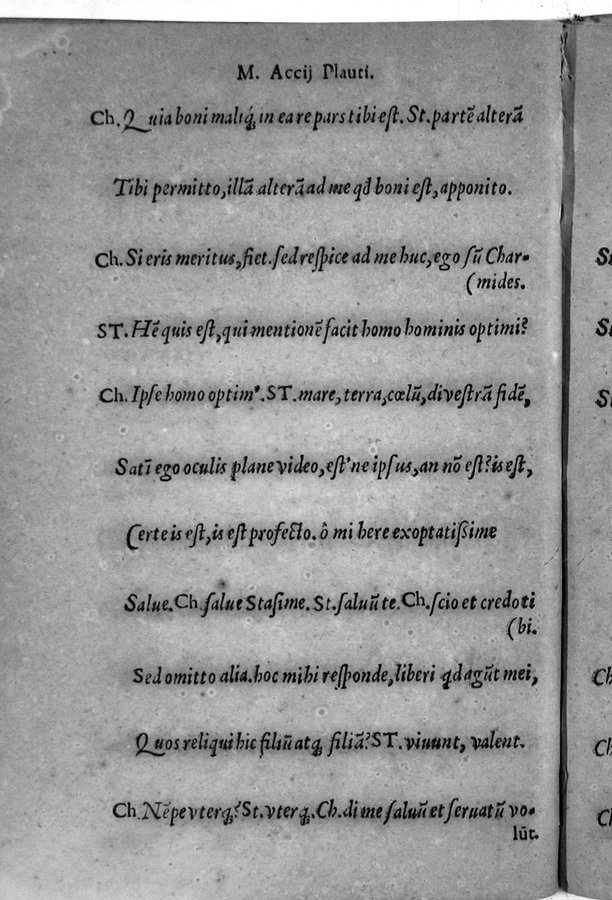 M. Accij Plauti.
Ch. Quia boni maliq́; in ea re pars tibi est. St. partẽ alterã
Tibi permitto, illã alterã ad me qđ boni est, apponito.
Ch. Si eris meritus, fiet. sed respice ad me huc, ego sũ Char-
(mides.
ST. Hẽ quis est, qui mentionẽ facit homo hominis optimi?
Ch. Ipse homo optimꝰ. ST. mare, terra, cœlũ, di vestrã fidẽ,
Satĩ ego oculis plane video, est'ne ipsus, an nõ est? is est,
Certe is est, is est profecto. ô mi here exoptatissime
Salue. Ch. salue Stasime. St. saluũ te. Ch. scio et credo ti
(bi.
Sed omitto alia. hoc mihi responde, liberi qd agũt mei,
Quos reliqui hic filiũ atq; filiã? ST. viuunt, valent.
Ch. Nẽpe vterq;? St. vterq;. Ch. di me saluũ et seruatũ vo-
lũt.
St
St
St
Ch
Ch
Ch